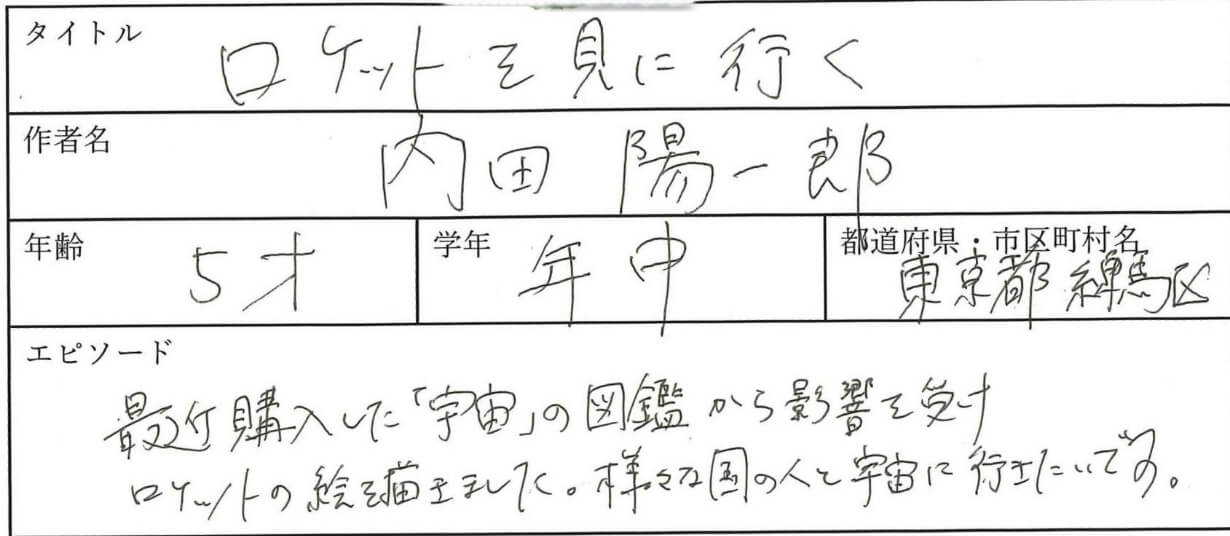 タイトル
ロケットを見に行く
作者名
内田 陽一郎
年齢
5才
学年
年中
都道府県・市区町村名
東京都 練馬区
エピソード
最近購入した「宇宙」の図鑑から影響を受け
ロケットの絵を描きました。様々な国の人と宇宙に行きたいです。